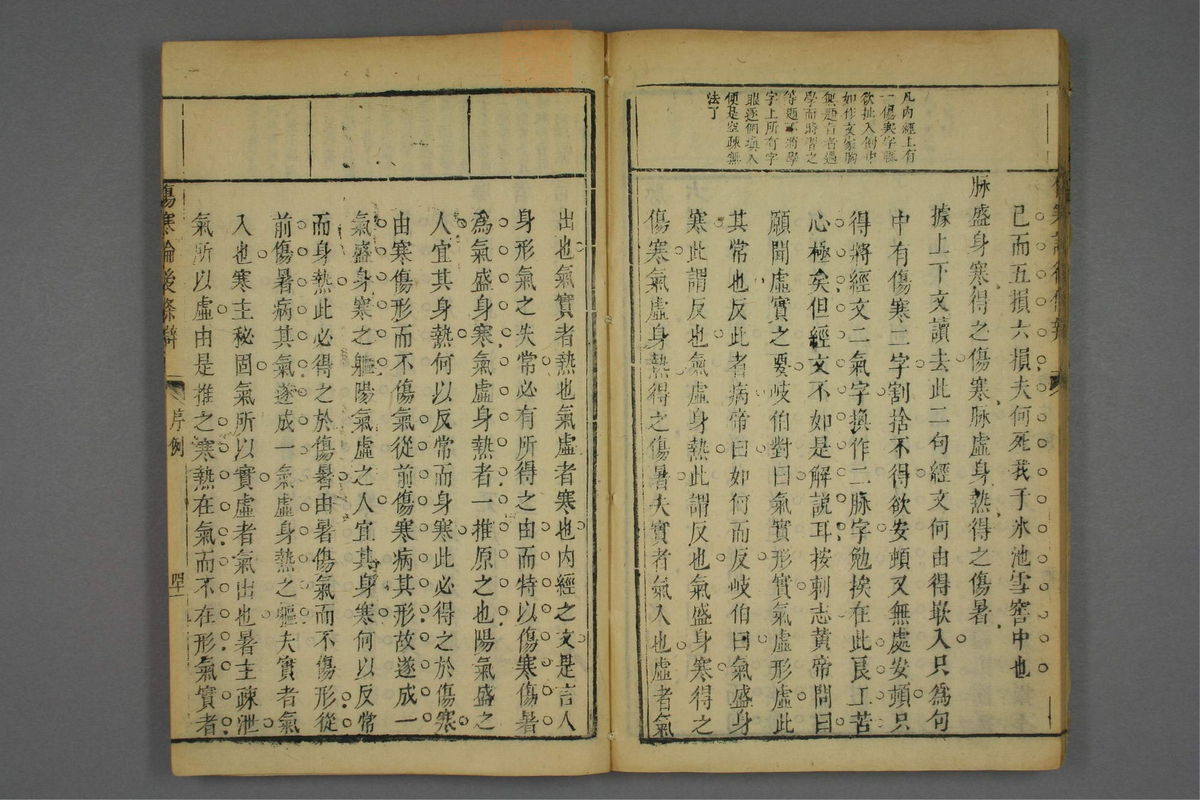 凡內經上有
一傷寒字輒
欲扯入倒中
如作文家胸
無題旨者遇
學而時習之
等題不將學
字上所有字
眼逐個填入
便是空疎無
法了
已而五損六損夫何死我于氷池雪窖中也
脉盛身寒得之傷寒脉虛身熱得之傷暑
據上下文讀去此二句經文何由得嵌入只爲何
中有傷寒二字割捨不得欲安頓又無處安頓只
得將經文二氣字換作二脉字勉挨在此良工苦
心極矣但經文不如是解説耳按刺志黃帝問曰
願聞虛實之要岐伯對曰氣實形實氣虛形虛此
其常也反此者病帝曰如何而反岐伯曰氣盛身
寒此謂反也氣虛身熱此謂反也氣盛身寒得之
傷寒氣虛身熱得之傷暑夫實者氣入也虛者氣
出也氣實者熱也氣虛者寒也內經之文是言人
身形氣之失常必有所得之由而特以傷寒傷暑
爲氣盛身寒氣虛身熱者一推原之也陽氣盛之
人宜其身熱何以反常而身寒此必得之於傷寒
由寒傷形而不傷氣從前傷寒病其形故遂成一
氣盛身寒之軀陽氣虛之人宜其身寒何以反常
而身熱此必得之於傷暑由暑傷氣而不傷形從
前傷暑病其氣遂成一氣虛身熱之軀夫實者氣
入也寒主秘固氣所以實虛者氣出也暑主疎泄
氣所以虛由是推之寒熱在氣而不在形氣實者
傷寒論後條辯
序例
四十一